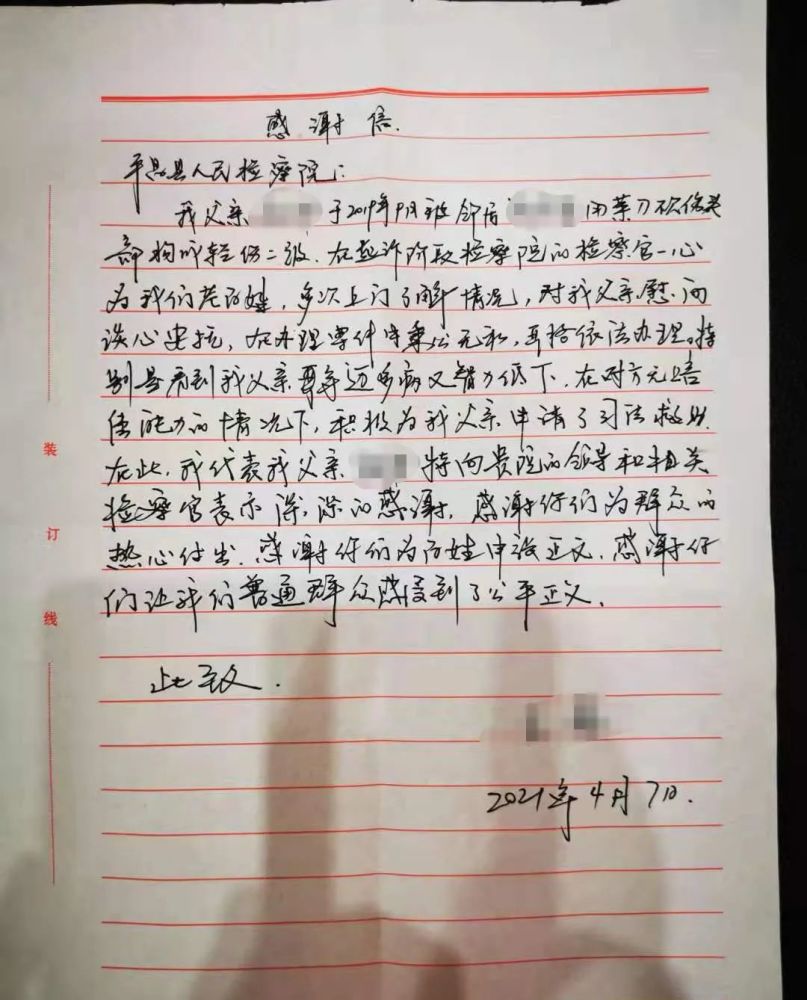 感谢信.
平昌县人民检察院:
我父亲 于2019年9月被邻居 用菜刀砍伤头
部构成轻伤二级.在起诉阶段检察院的检察官一心
为我们老百姓,多次上门了解情况,对我父亲慰问
谈心安抚,在办理案件中秉公无私,严格依法办理。特
别是看到我父亲年迈多病又智力低下.在对方无赔
偿能力的情况下,积极为我父亲申请了司法救助.
在此,我代表我父亲 特向贵院的领导和相关
检察官表示深深的感谢,感谢你们为群众的
热心付出.感谢你们为百姓申张正义.感谢你
们让我们普通群众感受到了公平正义.
此致.
2021年4月7日.
装
订
线